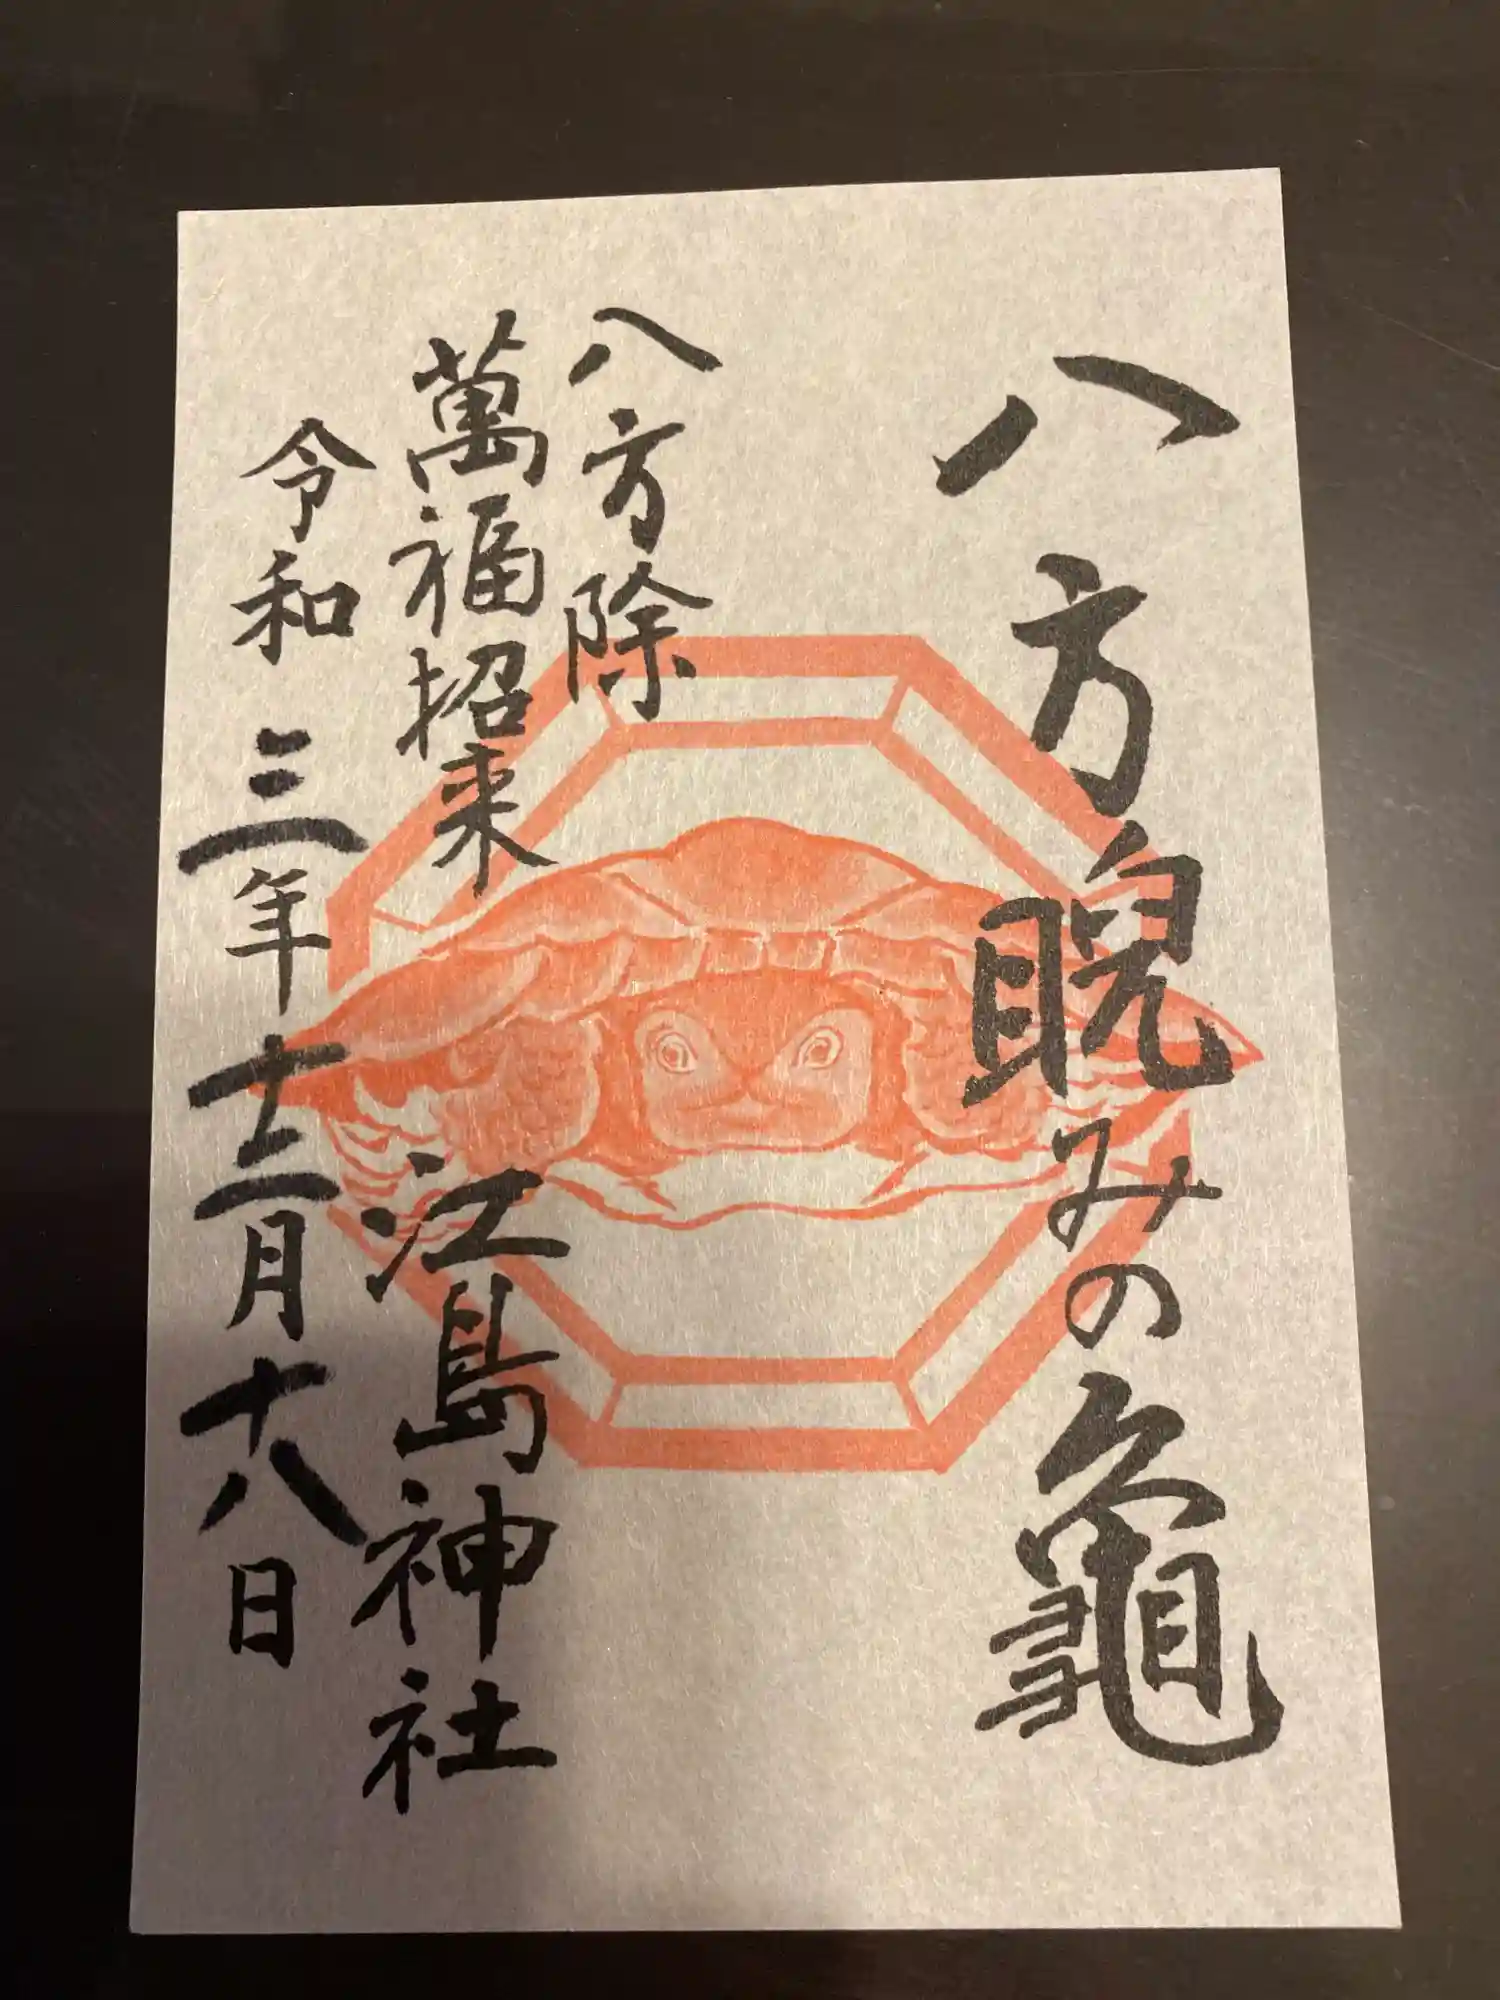 八方睨みの龜
八方除
萬福招来
江島神社
令和三年十二月十八日